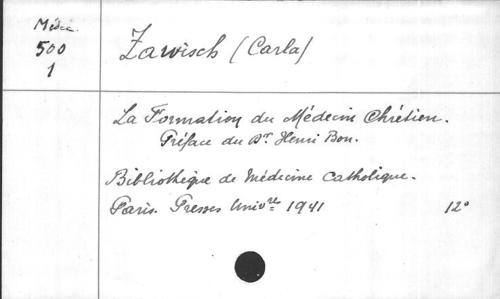 Médec.
500
1
Zawisch (Carla)
La Formation du Médecin Chrétien.
Préface du Dr. Henri Bon.
Bibliothèque de Médecine Catholique.
Paris. Presses Univre 1941 12°